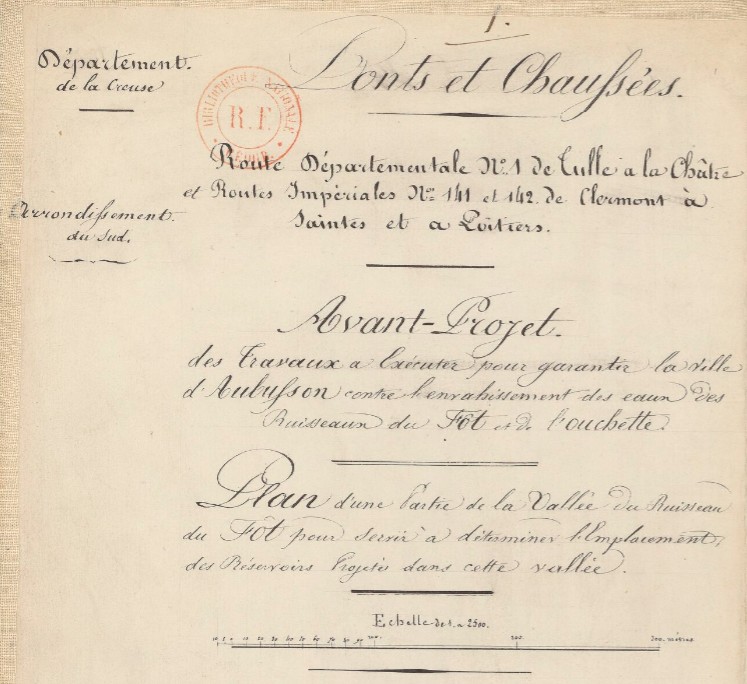 1.
Département.
de la Creuse
Ponts et Chaussées.
BIBLIOTHÈQUE NATIONALE
R.F.
Route Départementale Nº 1 de Tulle a la Châtre
et Routes Impériales Nos 141 et 142 de Clermont à
Saintes et a Poitiers.
Arrondissement.
du Sud.
Avant-Projet.
des Travaux a Exécuter pour garantir la ville
d'Aubusson contre l'envahissement des eaux des
Ruisseaux du Fôt et de l'ouchette.
Plan d'une Partie de la Vallée du Ruisseau
du Fôt pour servir à déterminer l'Emplacement,
des Réservoirs Projetés dans cette vallée.
Echelle de 1. a 2500.
200. mètres